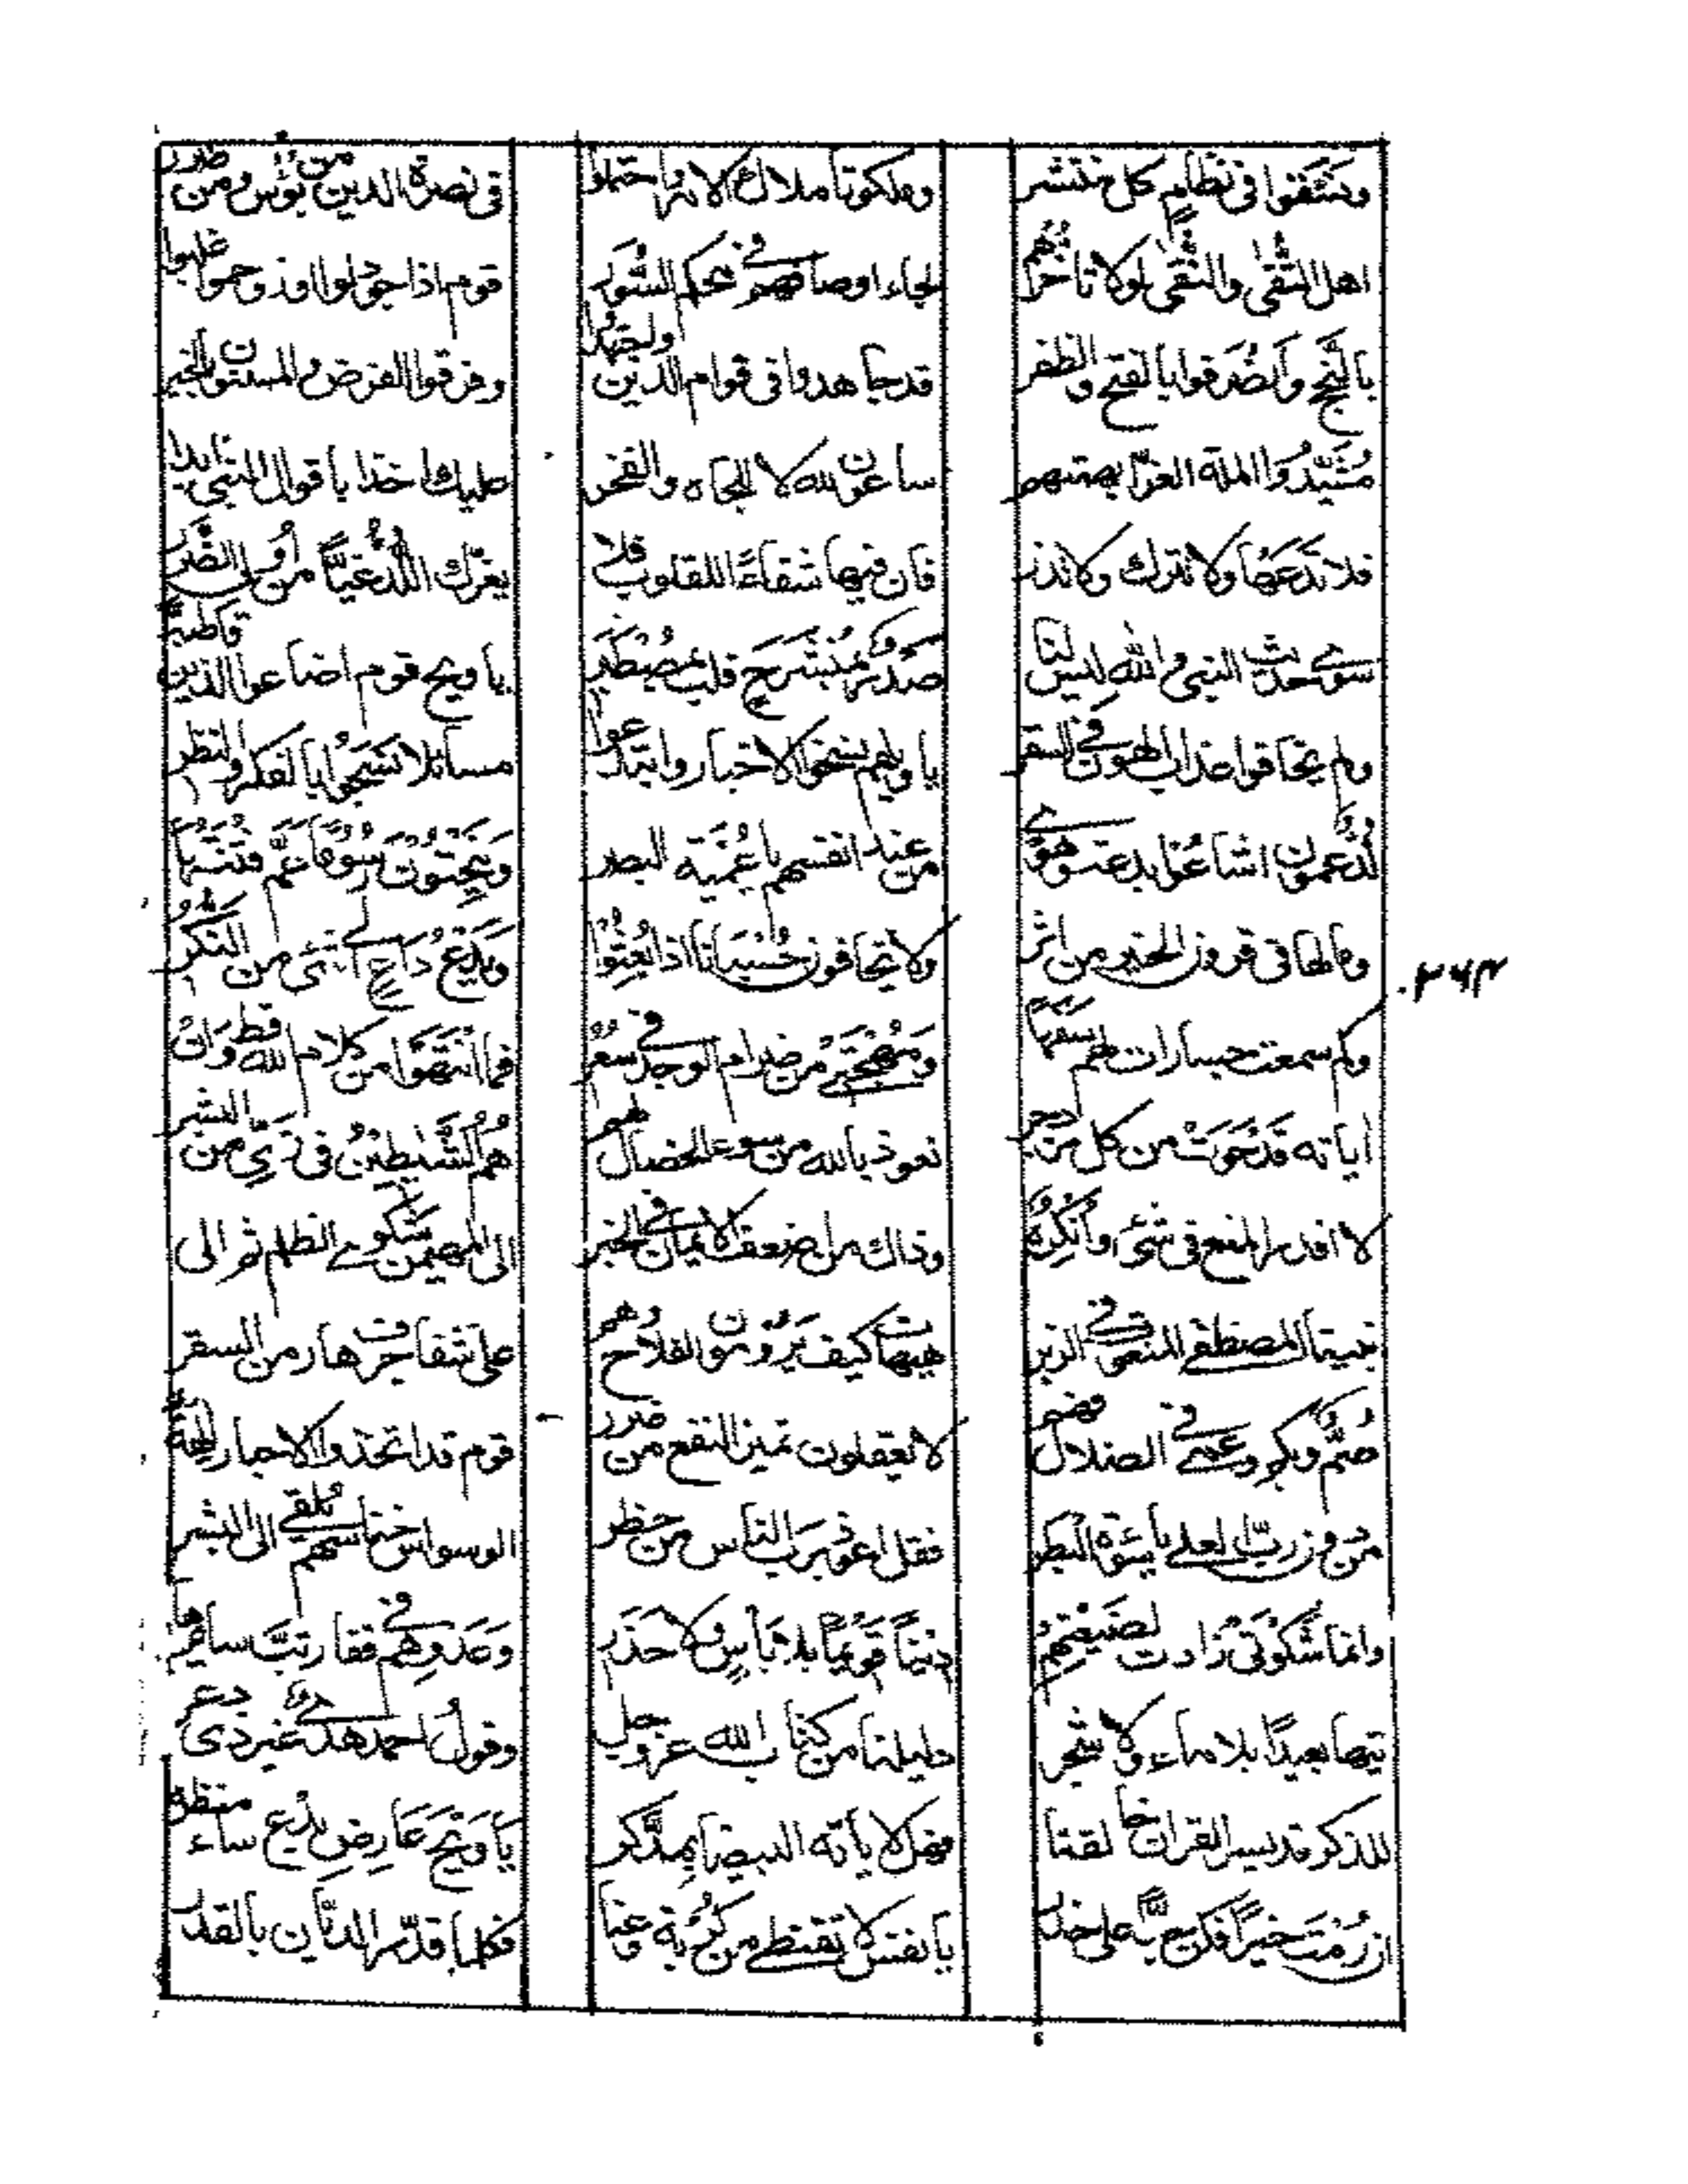 وتثقفوا في نظام كل منتشر
اهل التقى والنقى لولا تأخرهم
بالنجح وانصرفوا بالفتح والظفر
مشيدوا الملة الغرا بهمتهم
فلا تدعها ولا تترك ولا تذر
سوى حديث النبي والله ليس لنا
ولم يخافوا عذاب الهون في السقر
اشاعوا بدعة وهوى
وما لها في قرون الخير من اثر
وكم سمعت خسارات لهم
اياته قد حوت من كل مزدجر
لا اقدر المنع في شيء وانكره
نبينا المصطفى المنعوت في الزبر
صم وبكم وعمي في الضلال فهم
من دون رب العلى يا شؤة البطر
وانما شكوتي زادت لضيعتهم
تيها بعيدا بلا ماء ولا شجر
للذكر قد يسر القران خالقنا
ان رمت خيرا فكن على حذر
وملكوتا ملاك الامر واحتملوا
لجاء اوصافهم في محكم السور
قد جاهدوا في قوام الدين واجتهدوا
ساعون لله لا للجاه والفخر
فان فيها شفاء للقلوب فلا
صدر منشرح قلب مصطبر
يا ويلهم نسخوا الاخبار وابتدعوا
من عند انفسهم يا غمية البصر
ولا يخافون حسبانا اذا بعثوا
ومهجتي من ضرام الوجد في سعر
نعوذ بالله من سوء الخصال لهم
وذاك من اضعف الايمان في الخبر
هيهات كيف يرومون الفلاح وهم
لا يعقلون تميز النفع من ضرر
فقل اعوذ برب الناس من خطر
دينا قويما بلا باس ولا حذر
دليلنا من كتاب الله عز وجل
فهل لاياته البيضا بمدكر
يا نفس لا تقنطي من كربة وعنا
في نصرة الدين من بؤس ومن ضرر
قوم اذا جودلوا او زوحموا غلبوا
وفرقوا الفرض والمسنون بالخير
عليك اخذا باقوال النبي ابدا
يغرك اللد غيا من اولي الضرر
يا ويح قوم اضاعوا الدين قاطبة
مسائلا نسجوا بالفكر والنظر
فتنتها
داع الى شيء من النكر
فما انتهوا من كلام الله قط وان
هم الشيطين في زي من البشر
الى المهيمن شكوى الظلم ثم الى
على شفا جرف هار من السقر
قوم قد اتخذوا الاحبار الهة
الوسواس خناسهم يلقي الى البشر
وعدوهم في فقار تب سائرها
وقول احمد هدي غير ذي
يا ويح عارض بدع ساء منظره
فكل ما قدر الديان بالقدر
٢٦٣